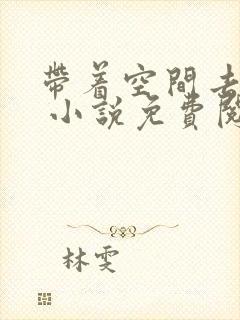 帶着空間去
小說免費閱
林雯